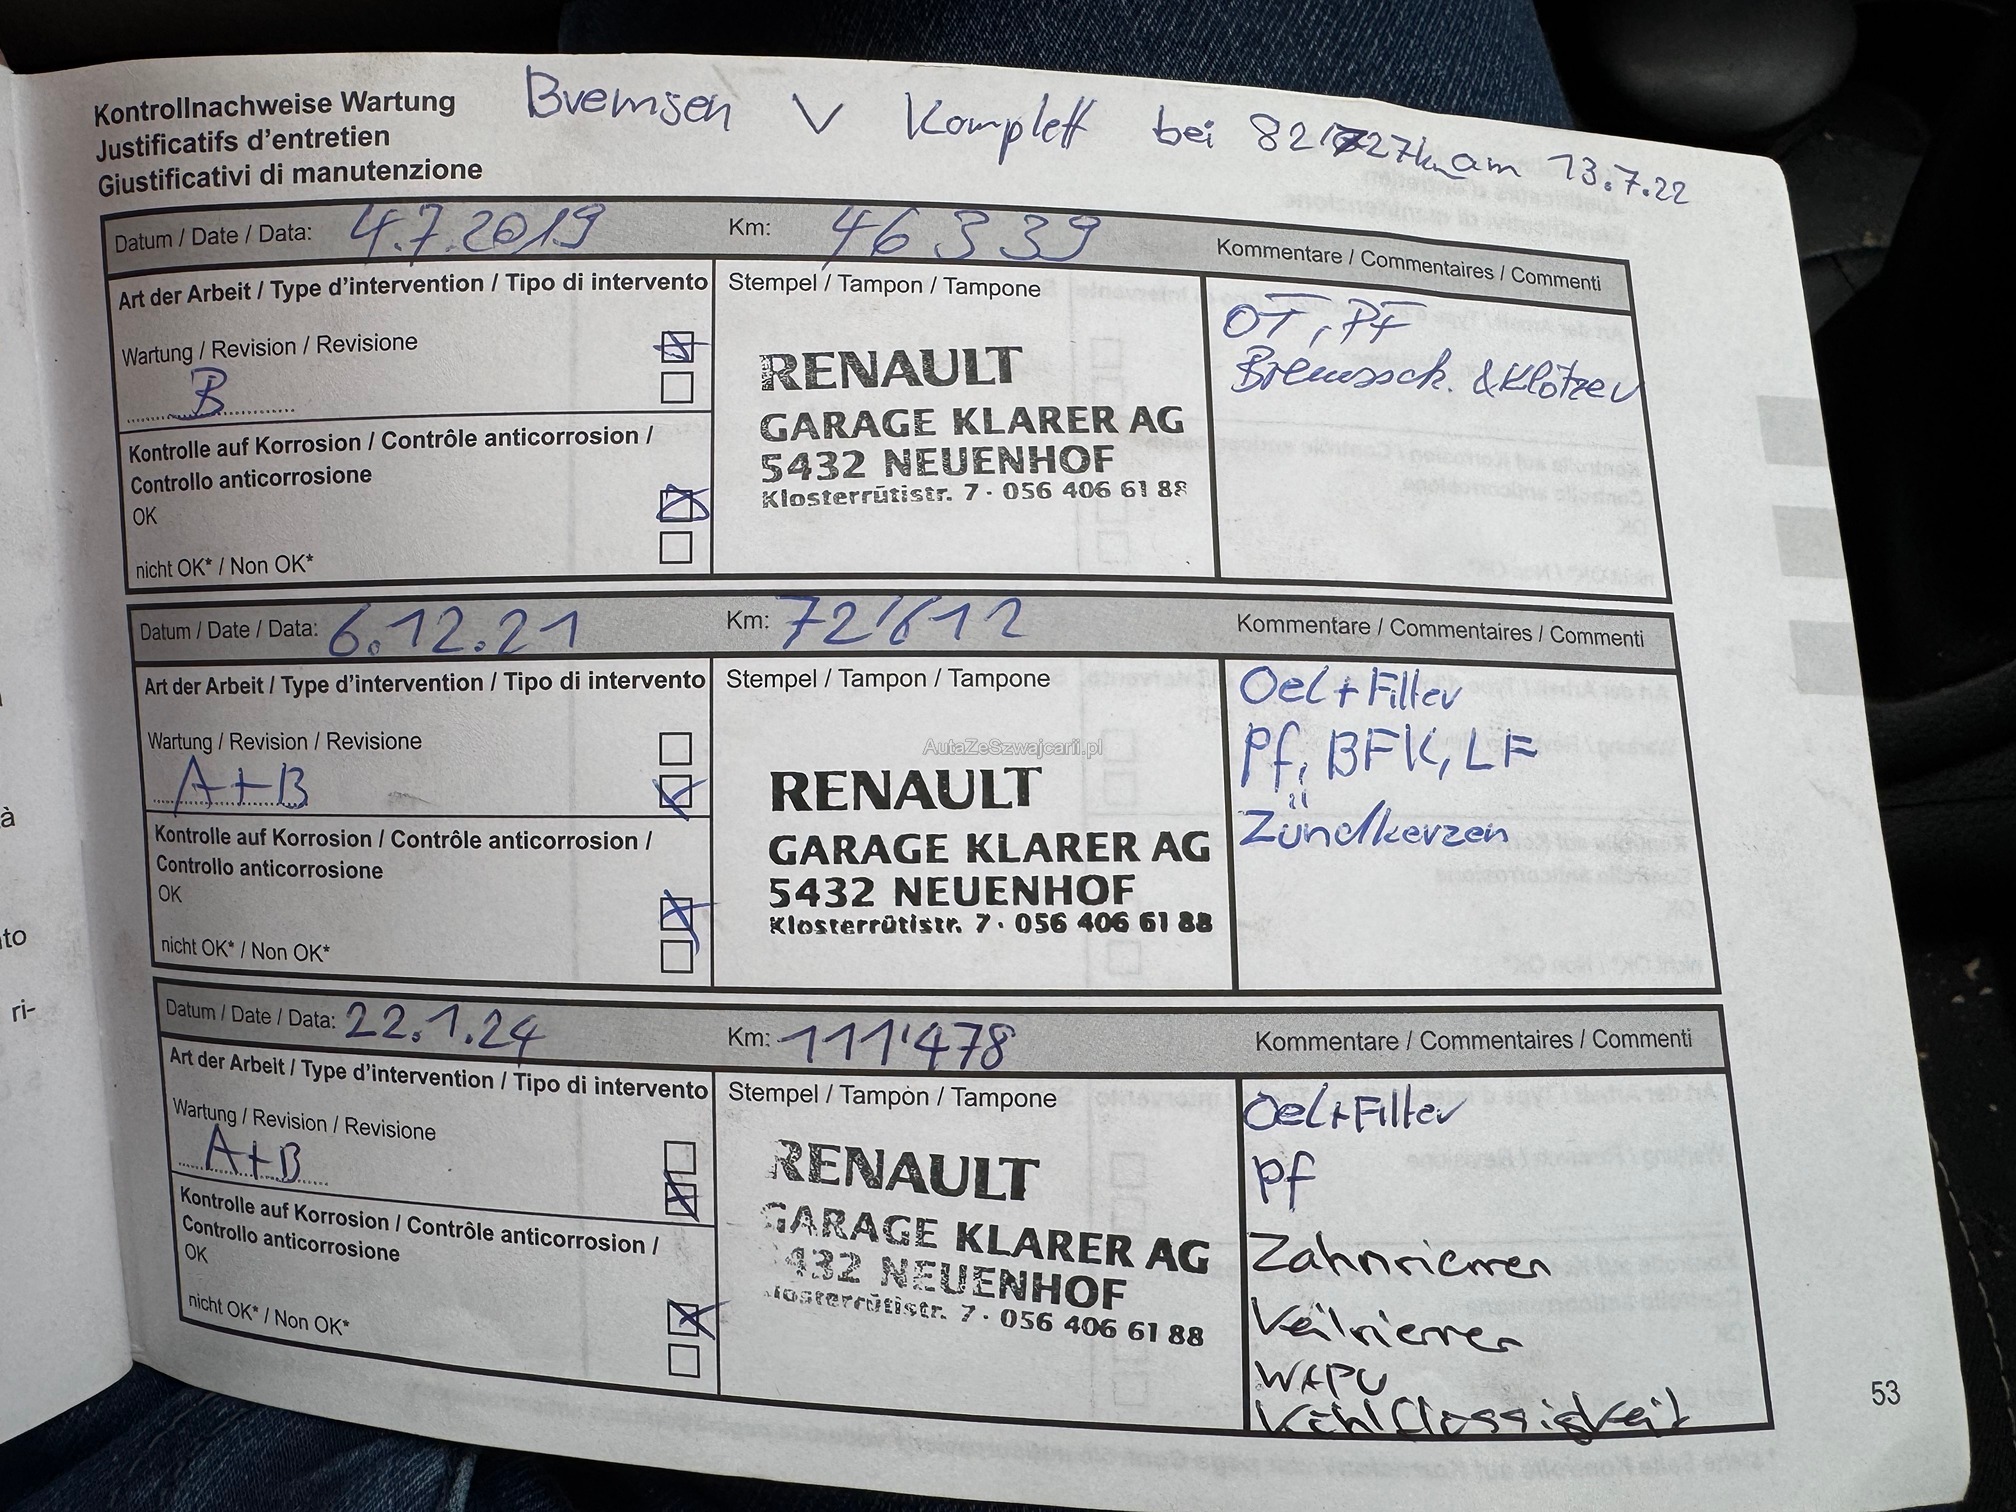 Kontrollnachweise Wartung
Justificatifs d'entretien
Giustificativi di manutenzione
Bremsen V Komplett bei km am 13.7.22
Datum / Date / Data: 4.7.2019 Km: 46339 Kommentare / Commentaires / Commenti
Art der Arbeit / Type d'intervention / Tipo di intervento
Wartung / Revision / Revisione
B
Kontrolle auf Korrosion / Contrôle anticorrosion /
Controllo anticorrosione
OK
nicht OK* / Non OK*
Stempel / Tampon / Tampone
RENAULT
GARAGE KLARER AG
5432 NEUENHOF
Klosterrütistr. 7 · 056 406 61 88
OT, PF
Bremssch. & Klötze V
Datum / Date / Data: 6.12.21 Km: 72'612 Kommentare / Commentaires / Commenti
Art der Arbeit / Type d'intervention / Tipo di intervento
Wartung / Revision / Revisione
A+B
Kontrolle auf Korrosion / Contrôle anticorrosion /
Controllo anticorrosione
OK
nicht OK* / Non OK*
Stempel / Tampon / Tampone
AutaZeSzwajcarii.pl
RENAULT
GARAGE KLARER AG
5432 NEUENHOF
Klosterrütistr. 7 · 056 406 61 88
Oel+Filter
Pf, BFK, LF
Zündkerzen
Datum / Date / Data: 22.1.24 Km: 111'478 Kommentare / Commentaires / Commenti
Art der Arbeit / Type d'intervention / Tipo di intervento
Wartung / Revision / Revisione
A+B
Kontrolle auf Korrosion / Contrôle anticorrosion /
Controllo anticorrosione
OK
nicht OK* / Non OK*
Stempel / Tampon / Tampone
RENAULT
GARAGE KLARER AG
5432 NEUENHOF
Klosterrütistr. 7 · 056 406 61 88
Oel+Filter
Pf
Zahnriemen
Keilriemen
WAPU
Kühlflüssigkeit
53